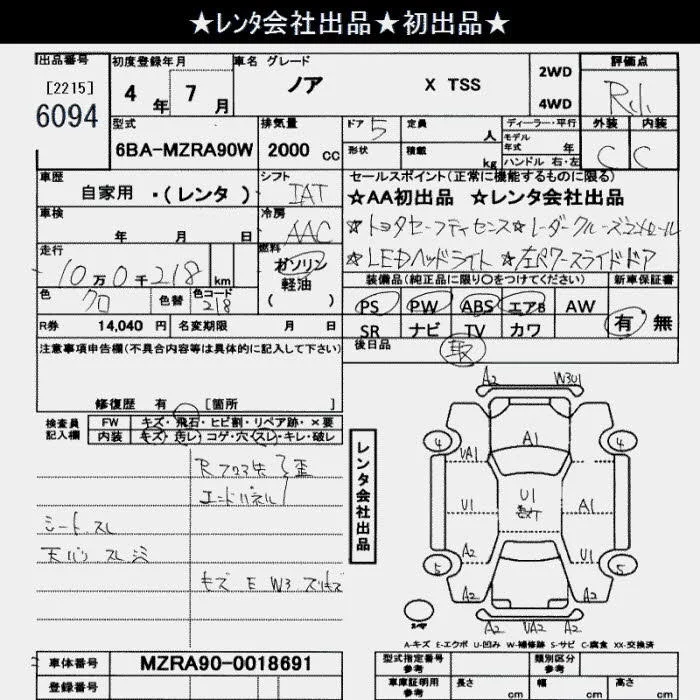 ★レンタ会社出品★初出品★
出品番号 初度登録年月 車名 グレード 評価点
[2215]
6094
4年 7月 ノア X TSS
2WD
4WD
外装 内装
C C
型式 排気量 ドア 定員 ディーラー・平行
6BA-MZRA90W 2000 cc 5 人 モデル年式 年
形状 積載 kg ハンドル 右・左
車歴 シフト セールスポイント(正常に機能するものに限る)
自家用 ・(レンタ) IAT ★AA初出品 ★レンタ会社出品
車検 冷房 ☆トヨタセーフティセンス☆レーダークルーズコントロール
年 月 日 AAC ☆LEDヘッドライト ☆左パワースライドドア
走行 燃料 装備品(純正品に限り○をつけてください) 新車保証書
10万0千218 km ガソリン
軽油
( )
色 色替 色コード PS PW ABS エアB AW 有・無
クロ 218
R券 14,040 円 名変期限 月 日 SR ナビ TV カワ
注意事項申告欄(不具合内容等は具体的に記入して下さい) 後日品 取
修復歴 有 [箇所 ]
検査員
記入欄
FW キズ・飛石・ヒビ割・リペア跡・×要
内装 キズ・汚レ・コゲ・穴・スレ・キレ・破レ
エンドパネル
シート スレ
キズ E W3
レンタ会社出品
A2 W3U1
4 4
A1
VA1
U1 U1 A1
A2 A2
5 5
A2 A2
A2 VA2 A2
A-キズ E-エクボ U-凹み W-補修跡 S-サビ C-腐食 XX-交換済
車体番号 MZRA90-0018691 型式指定番号 参考 類別区分 参考
登録番号 車庫証明用 参考 長さ cm 幅 cm 高さ cm